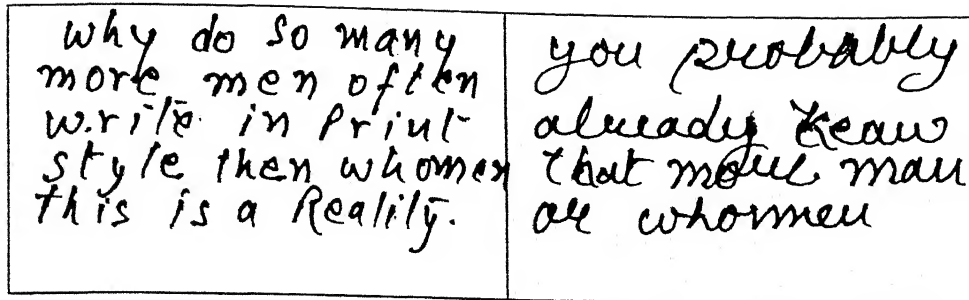 why do so many
more men often
write in Print
style then whomen
this is a Reality.
you probably
already keaw
that more man
or whormen